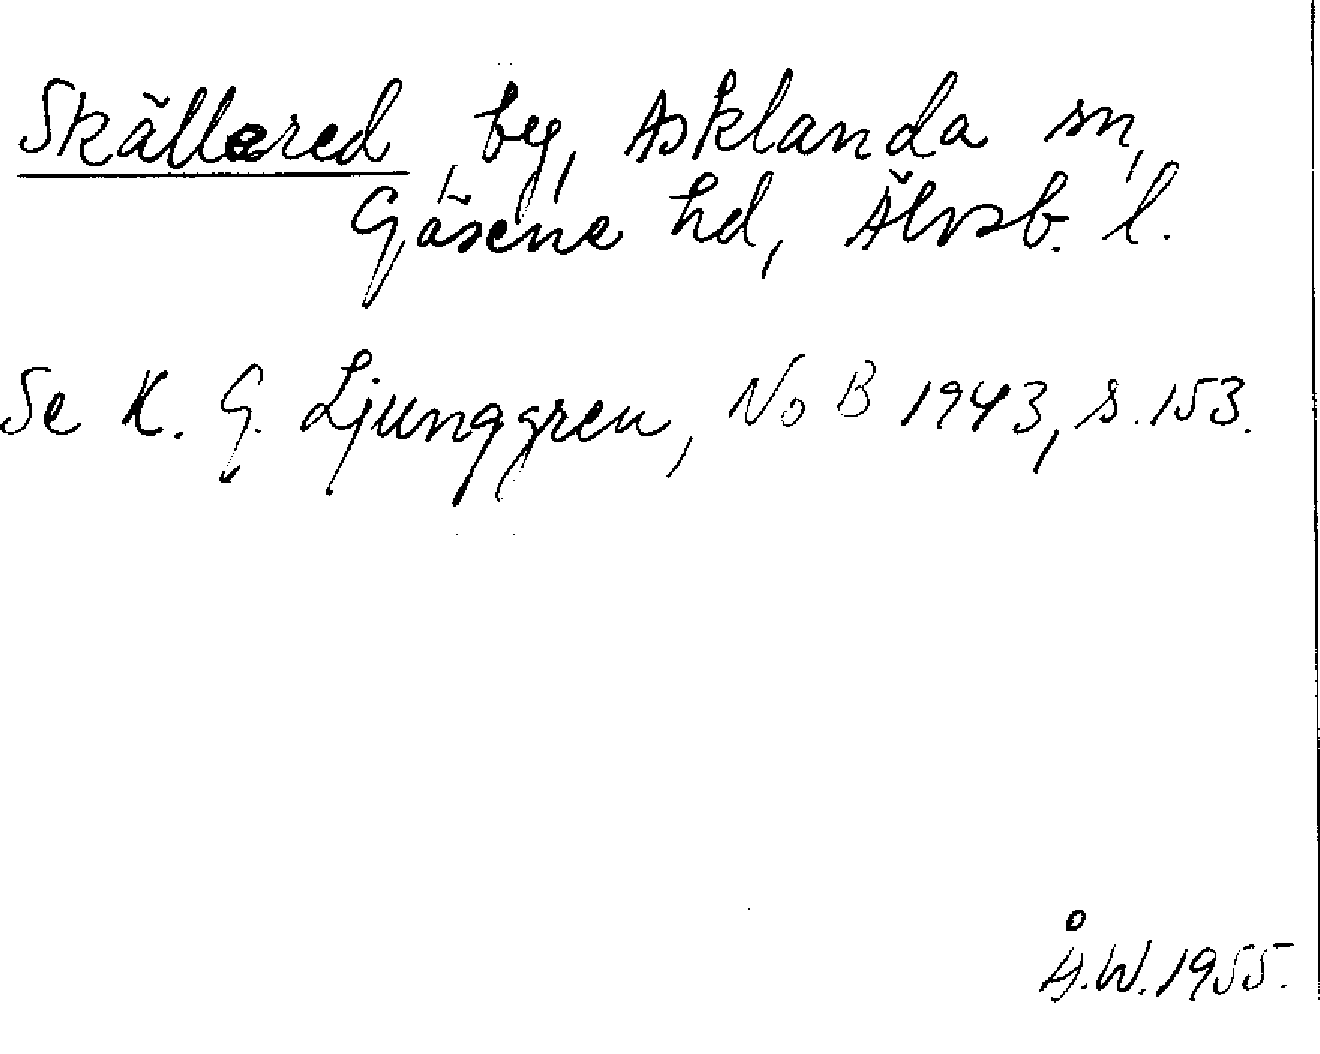 Skällered, by, Asklanda sn,
Gäsene hd, Älvsb. l.
Se K. G. Ljunggren, NoB 1943, s. 153.
Å.W. 1955.